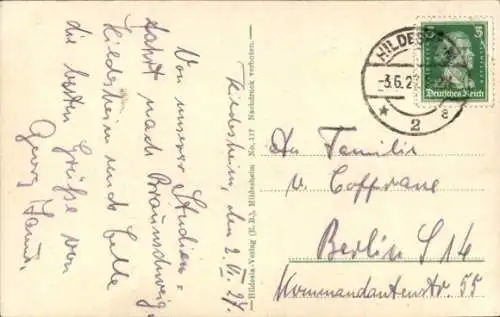 Hildesheim, den 2. VI. 27.
Von unserer Studien-
fahrt nach Braunschweig,
Hildesheim und Celle
die besten Grüße von
Georg
Hildesia-Verlag (E. B.), Hildesheim No. 117 Nachdruck verboten.
HILDESHEIM
-3.6.2
* 2 a
3
Deutsches Reich
An Familie
v. Coffrane
Berlin S 14
Kommandantenstr. 55